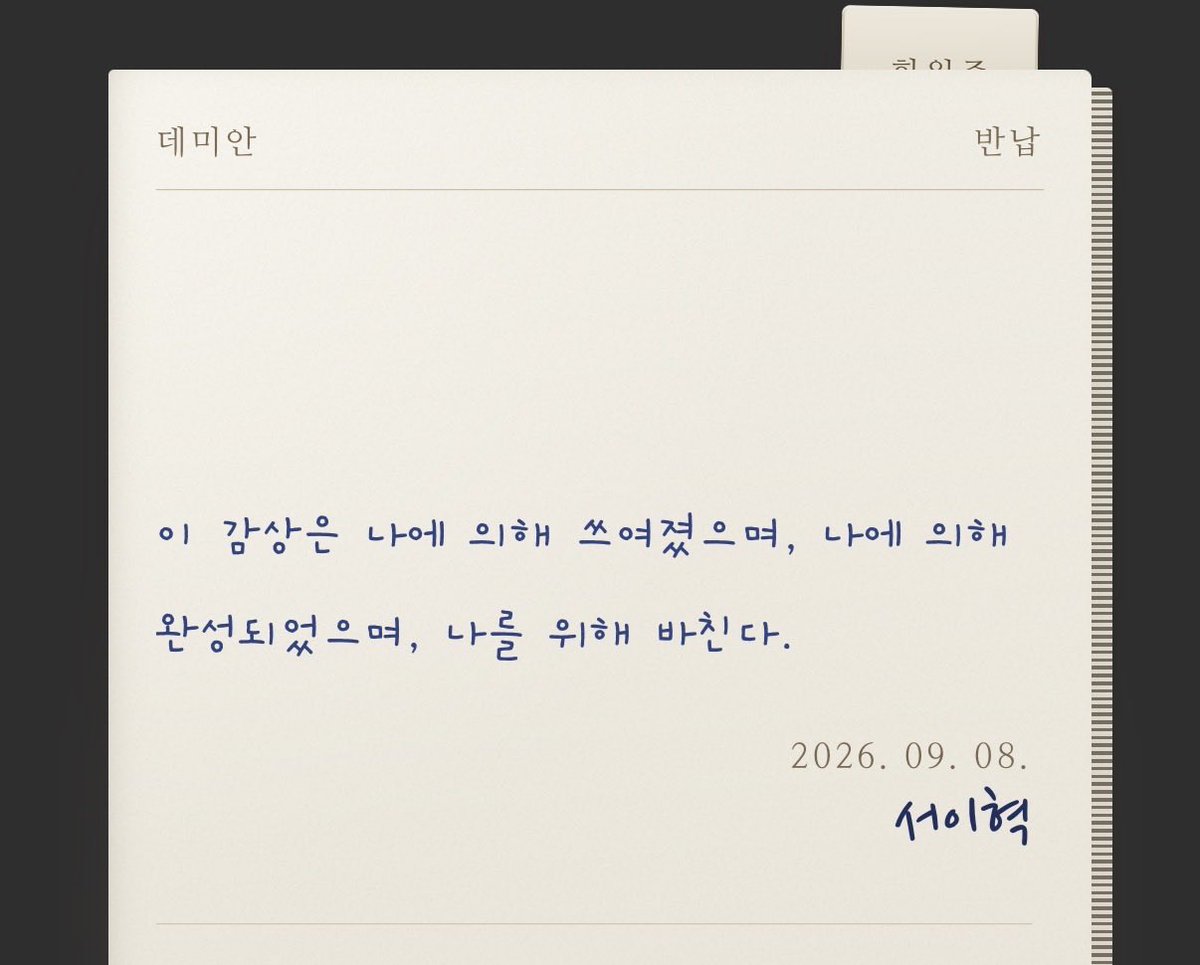 데미안 반납
이 감상은 나에 의해 쓰여졌으며, 나에 의해
완성되었으며, 나를 위해 바친다.
2026. 09. 08.
서이혁